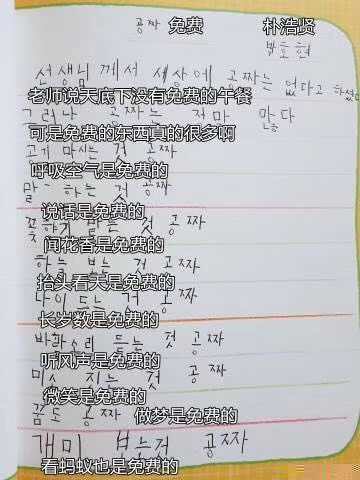 공짜 免费 朴浩贤
박호현
선생님 께서 세상에 공짜는 없다고 하셨다
老师说天底下没有免费的午餐
그러나 공짜는 정말 많다
可是免费的东西真的很多啊
공기 마시는 것 공짜
呼吸空气是免费的
말 하는 것 공짜
说话是免费的
꽃향기 맡는 것 공짜
闻花香是免费的
하늘 보는 것 공짜
抬头看天是免费的
나이 드는 것 공짜
长岁数是免费的
바람소리 듣는 것 공짜
听风声是免费的
미소 짓는 것 공짜
微笑是免费的
꿈도 공짜 做梦是免费的
개미 보는것 공짜
看蚂蚁也是免费的